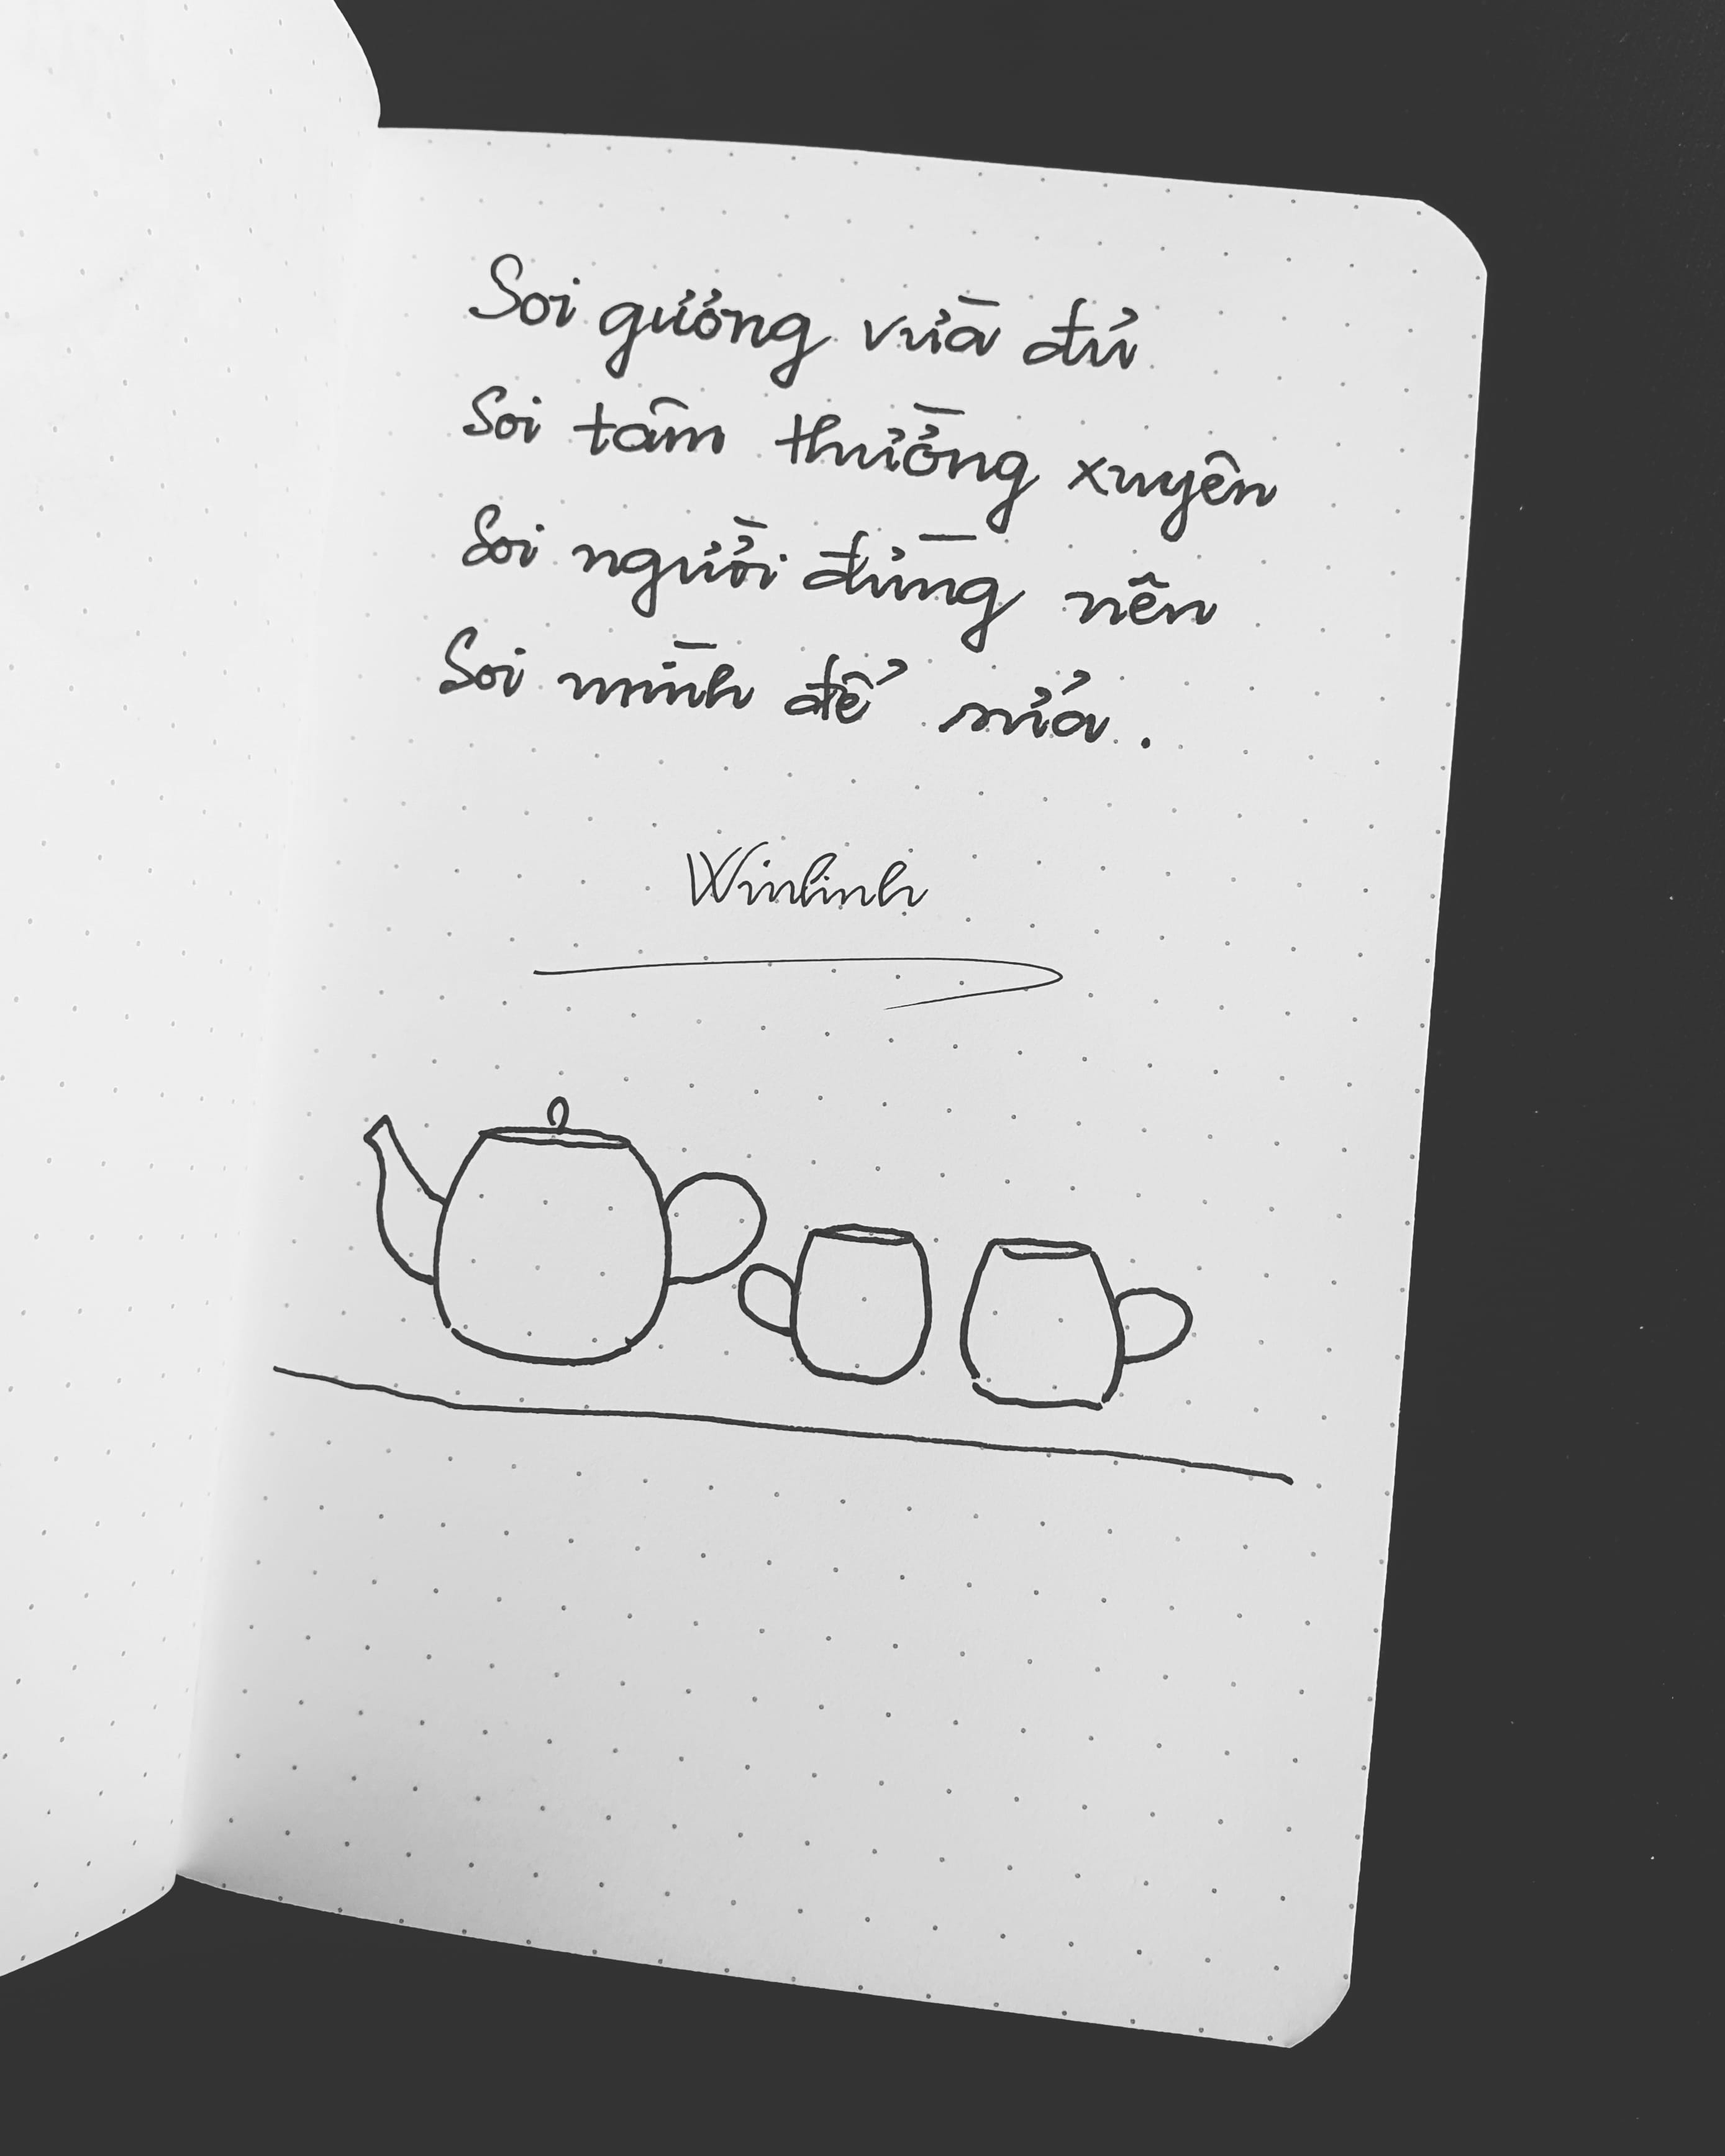 Soi gương vừa đủ
Soi tâm thường xuyên
Soi người đừng nên
Soi mình để sửa.
Winlinh